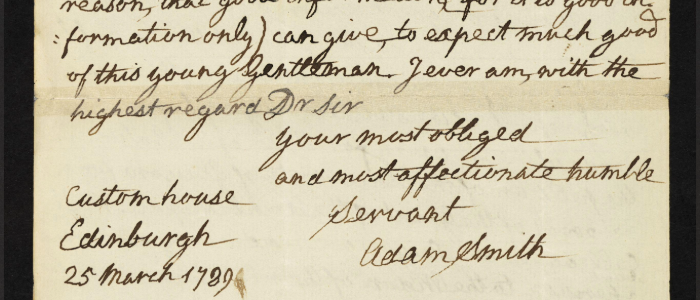 reason, that good
:formation only) can give, to expect much good
of this young Gentleman. I ever am, with the
highest regard Dr Sir
your most obliged
and most affectionate humble
Servant
Adam Smith
Custom house
Edinburgh
25 March 1789